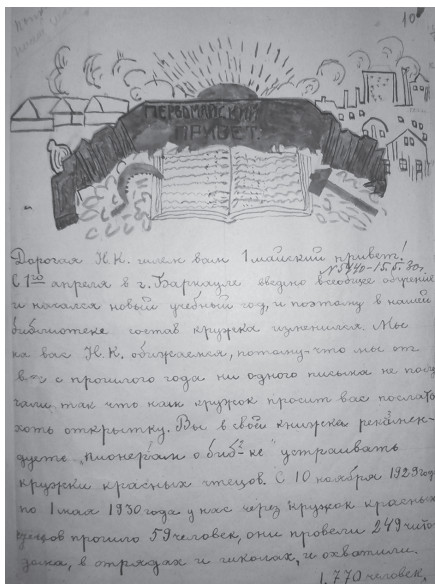 10
ПЕРВОМАЙСКИЙ
ПРИВЕТ.
Дорогая Н.К. шлем вам 1 майский привет!
№5440-15.5.30г.
С 1го апреля в г. Барнауле введно всеобщее обучение
и начался новый учебный год, и поэтому в нашей
библиотеке состав кружка изменился. Мы
на вас Н.К. обижаемся, потому-что мы от
вас с прошлого года ни одного письма не полу
чали, так что наш кружок просит вас послать
хоть открытку. Вы в свой книжке рекомен-
дуете „пионерам о биб-ке" устраивать
кружки красных чтецов. С 10 ноября 1929 год
по 1 мая 1930 года у нас через кружок красных
чтецов прошло 59 человек, они провели 249
в отрядах и школах, и охватили
1.770 человек,